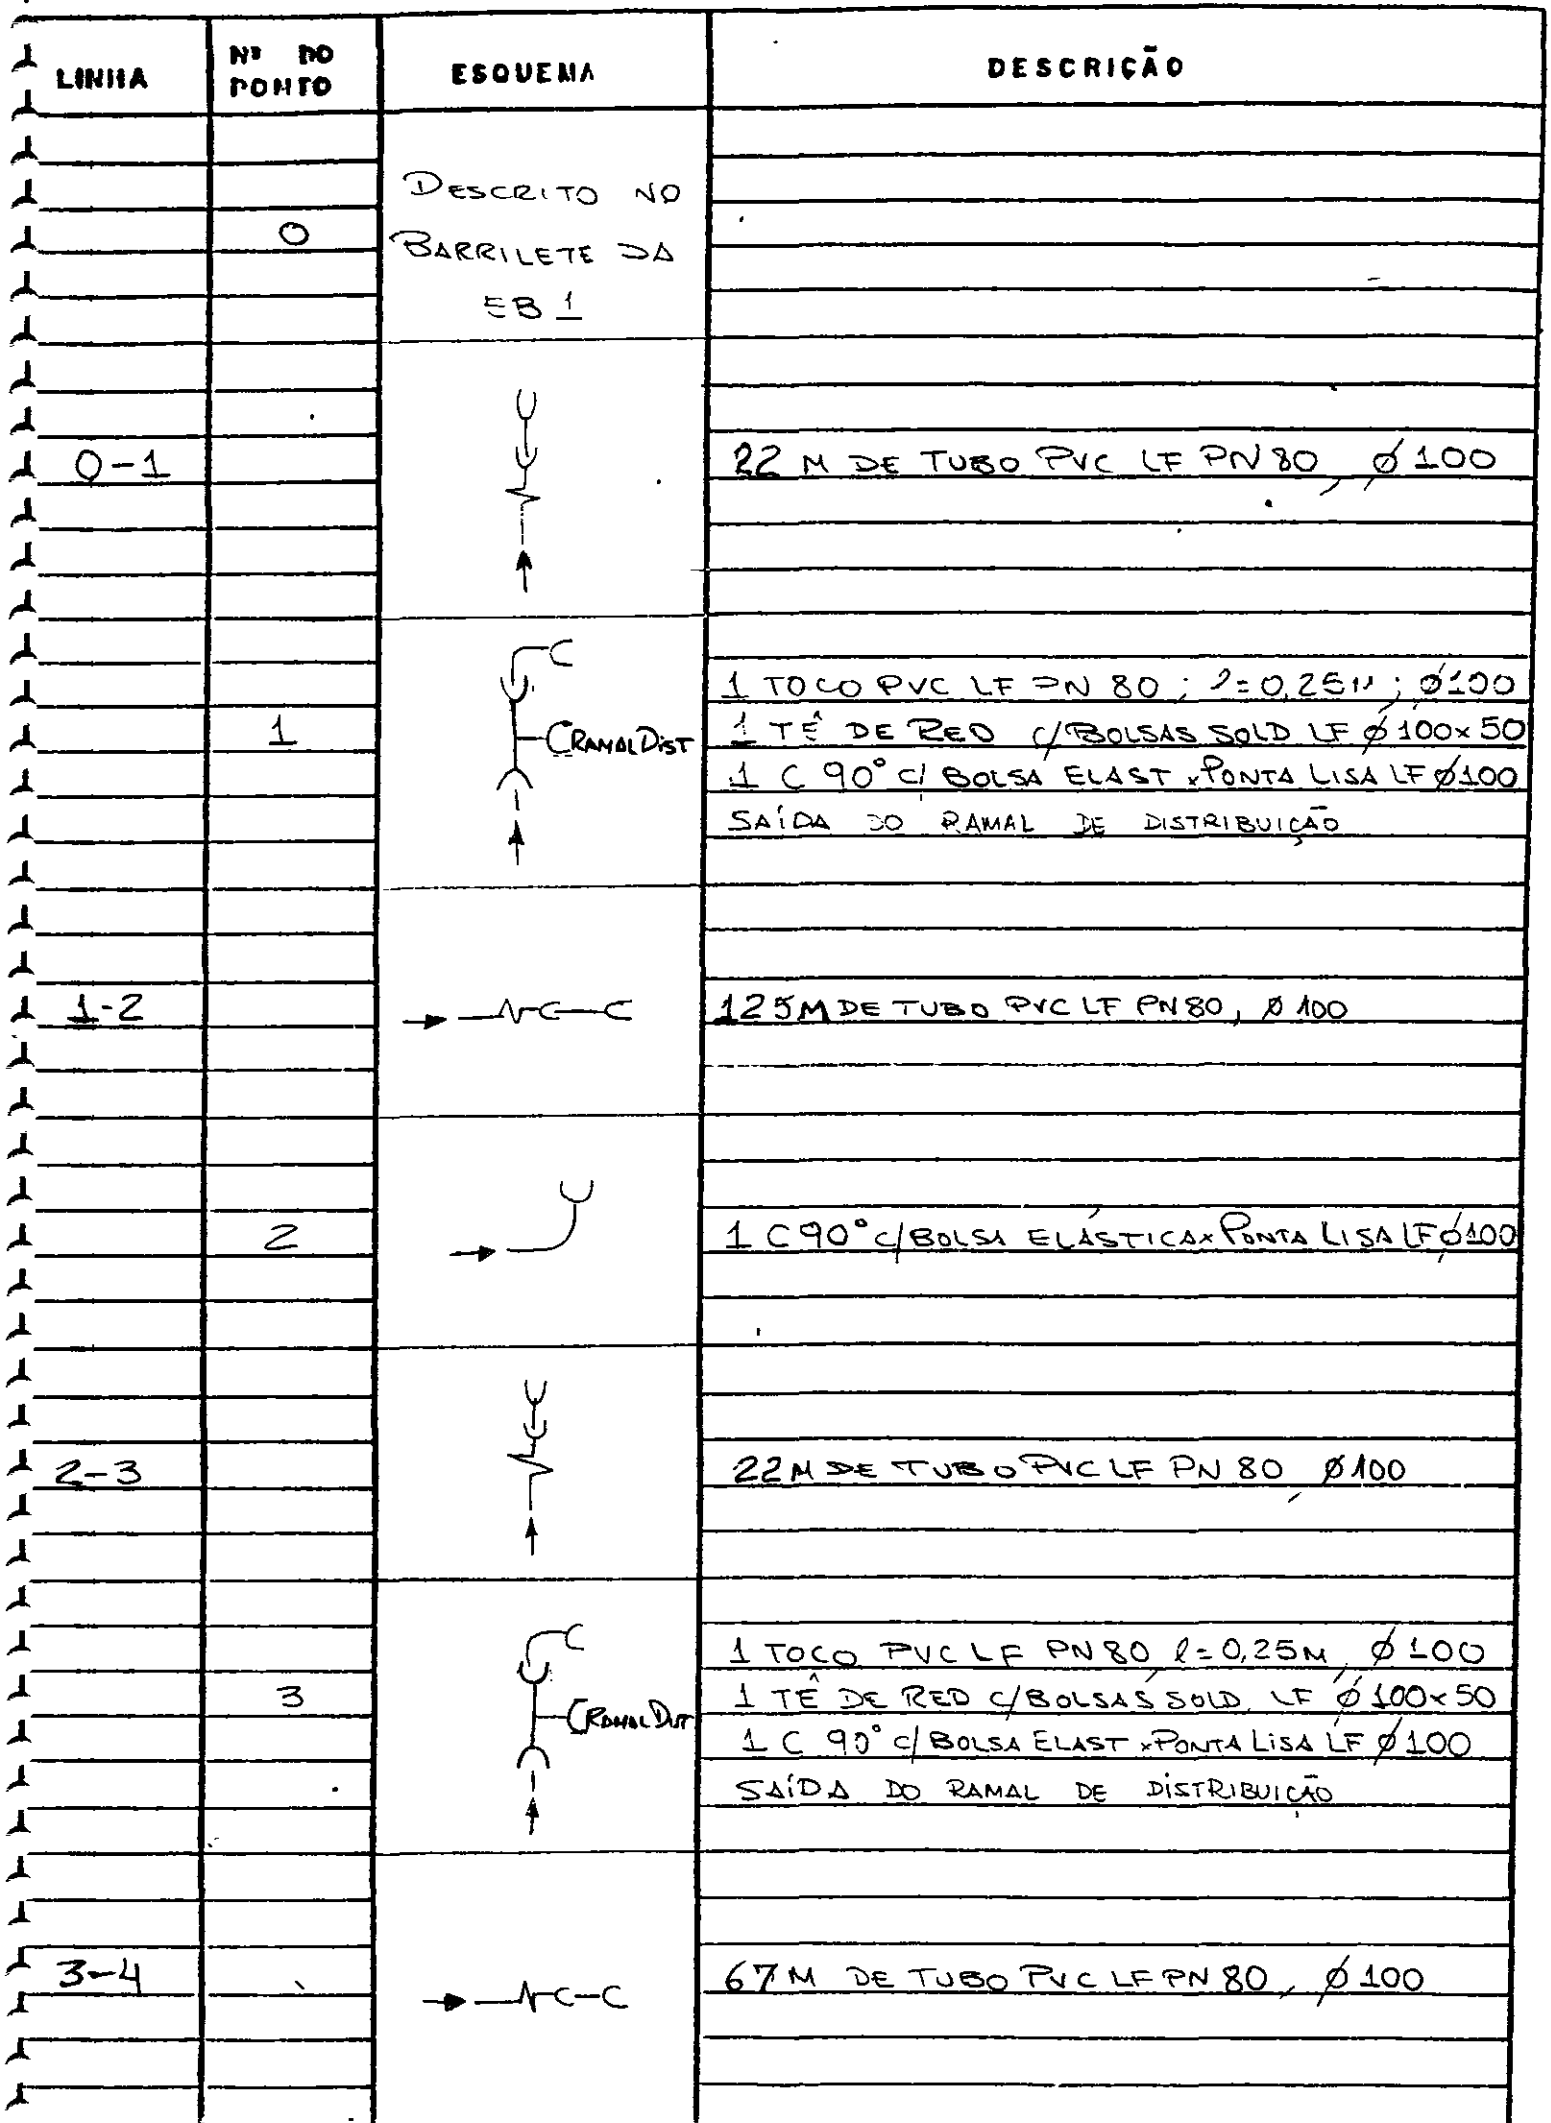 LINHA
Nº DO
PONTO
ESQUEMA
DESCRIÇÃO
0
DESCRITO NO
BARRILETE DA
EB 1
0-1
22 M DE TUBO PVC LF PN 80, Ø 100
1
RAMAL DIST
1 TOCO PVC LF PN 80; l=0,25M; Ø100
1 TÊ DE RED C/BOLSAS SOLD LF Ø 100x50
1 C 90° C/ BOLSA ELAST x PONTA LISA LF Ø100
SAÍDA DO RAMAL DE DISTRIBUIÇÃO
1-2
125M DE TUBO PVC LF PN80, Ø 100
2
1 C 90° C/BOLSA ELÁSTICA x PONTA LISA LF Ø100
2-3
22M DE TUBO PVC LF PN 80, Ø100
3
RAMAL DIST
1 TOCO PVC LF PN80, l=0,25M, Ø 100
1 TÊ DE RED C/BOLSAS SOLD. LF Ø 100x50
1 C 90° C/ BOLSA ELAST x PONTA LISA LF Ø 100
SAÍDA DO RAMAL DE DISTRIBUIÇÃO
3-4
67M DE TUBO PVC LF PN 80, Ø 100